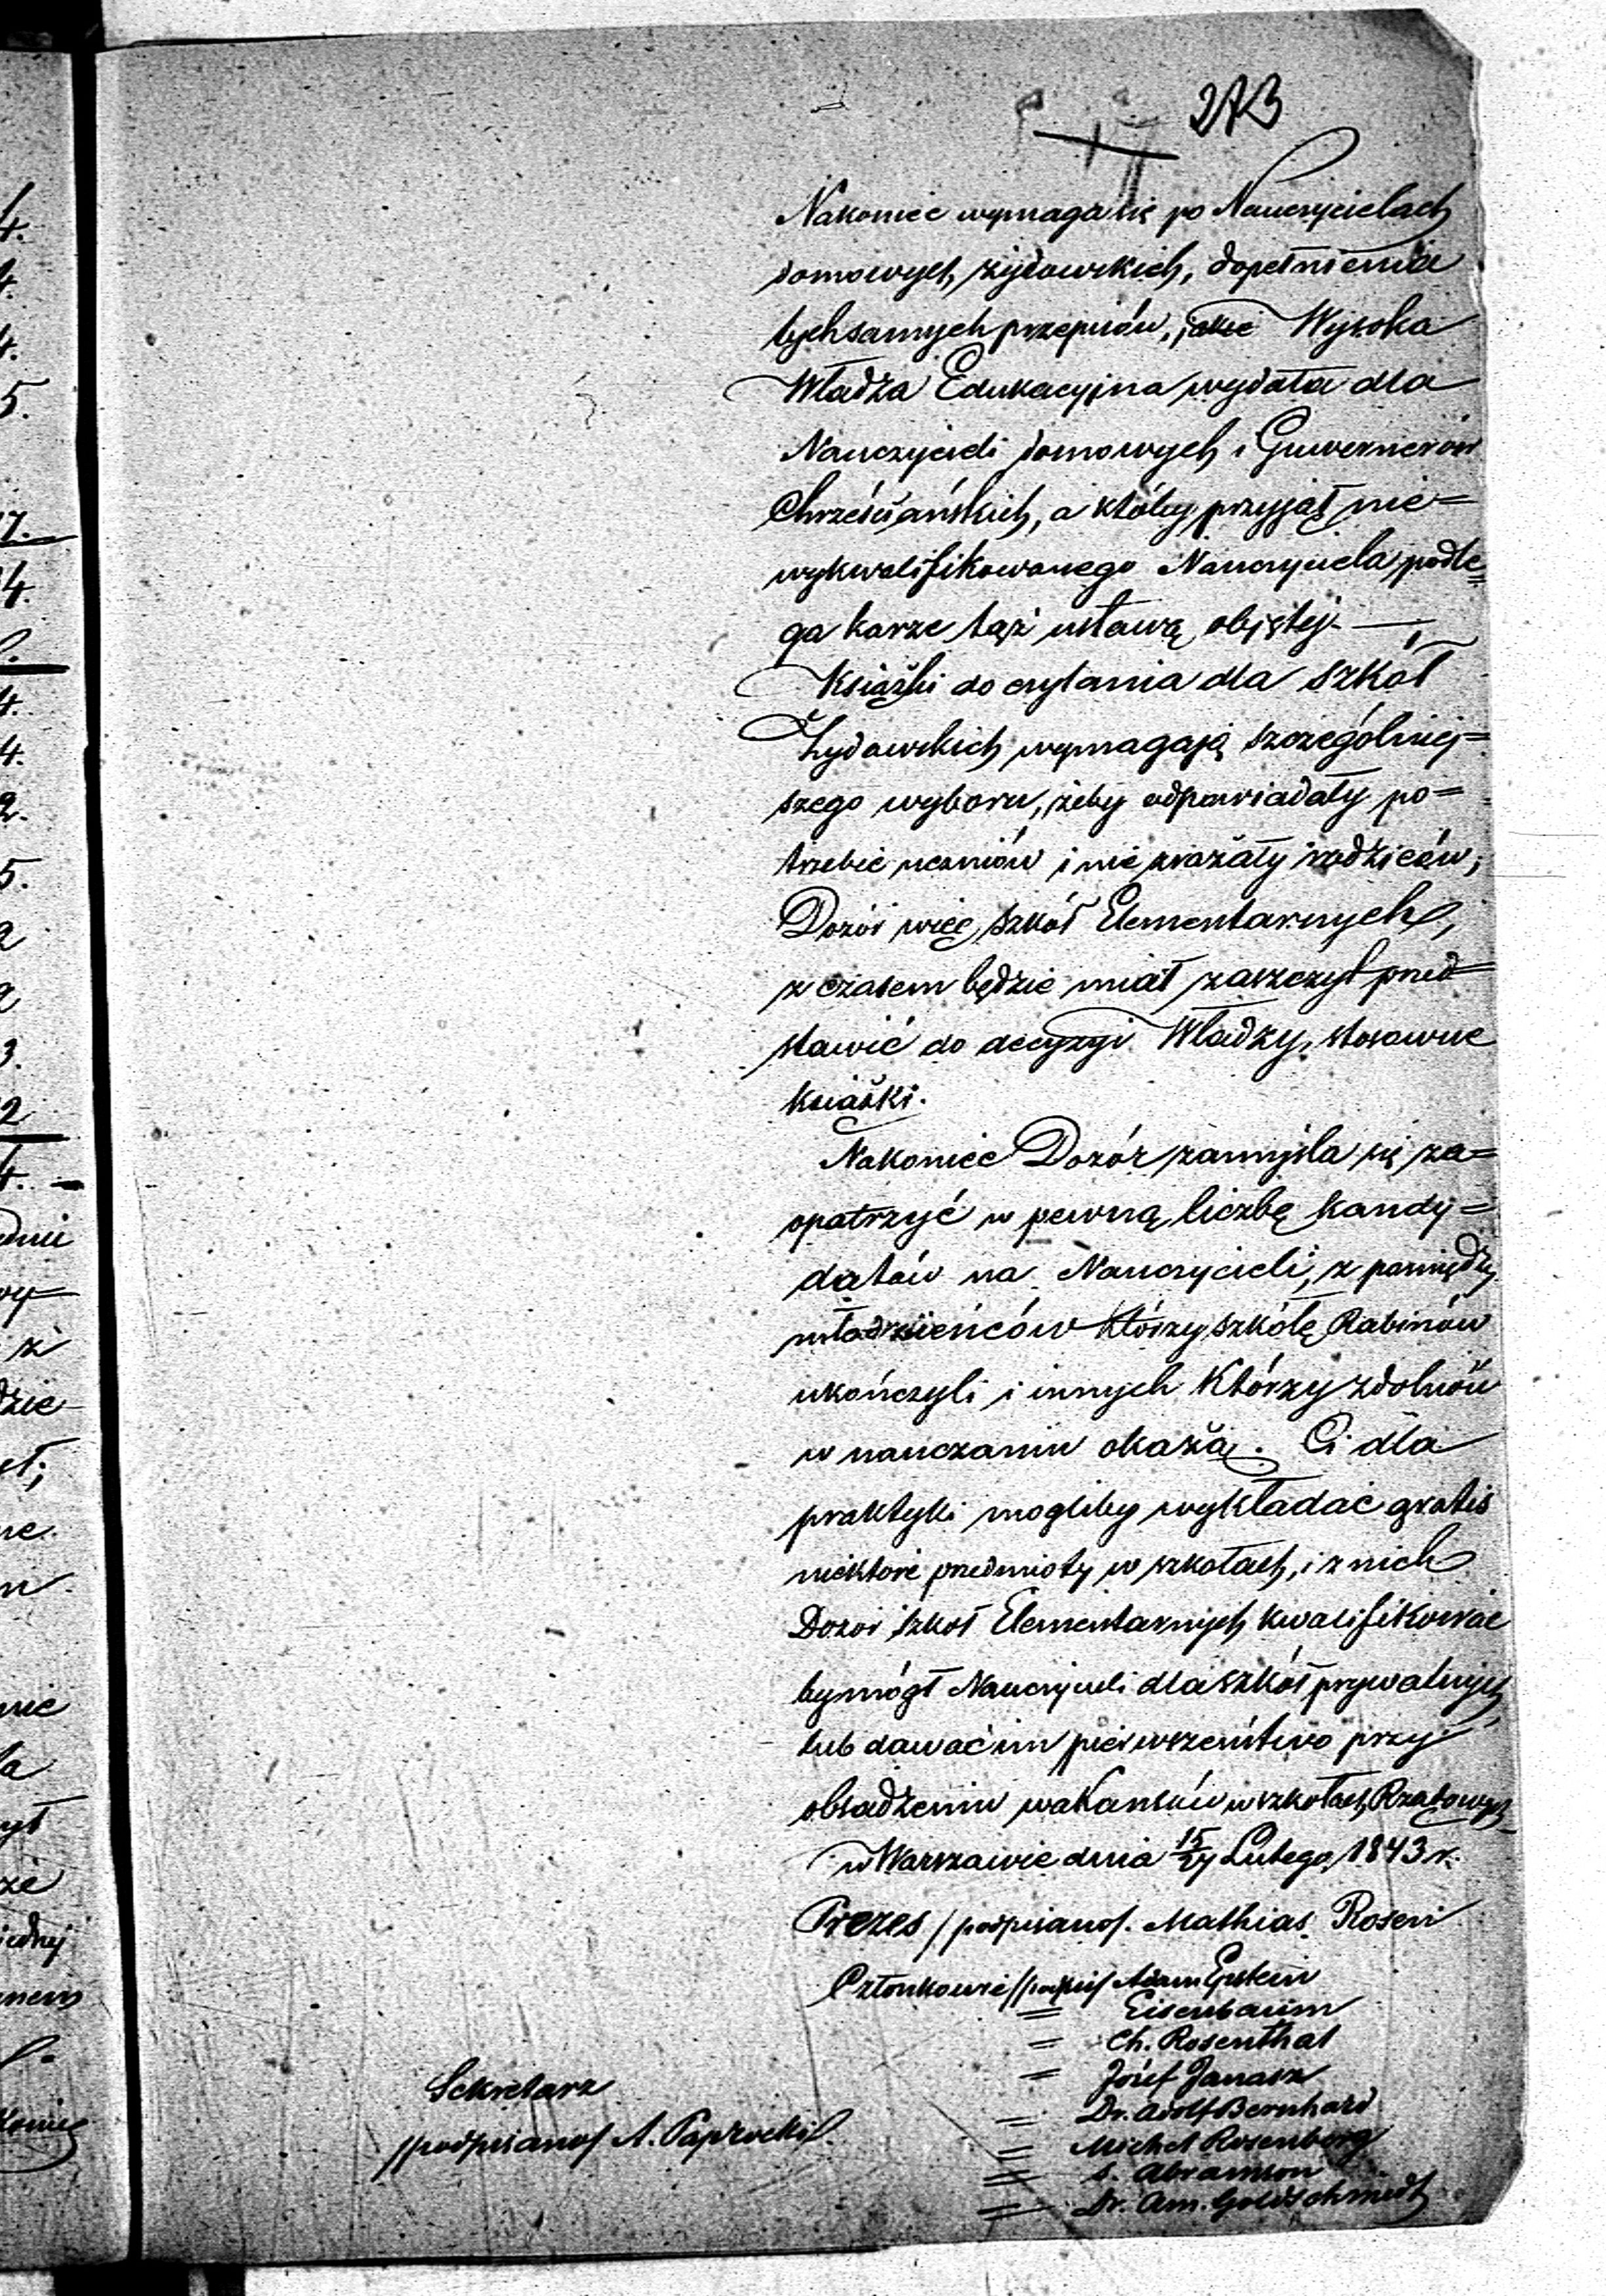 273
Nakoniec wymaga się po Nauczycielach
domowych żydowskich, dopełnienia
tychsamych przepisów, jakie Wysoka
Władza Edukacyjna wydała dla
Nauczycieli domowych i Guwernerów
Chrześciańskich, a któby przyjął nie=
wykwalifikowanego Nauczyciela podle=
ga karze tąż ustawą objętej. —
Książki do czytania dla szkół
Żydowskich wymagają szczególniej=
szego wyboru, żeby odpowiadały po=
trzebie uczniów i nie zrażały rodziców;
Dozór więc szkół Elementarnych,
z czasem będzie miał zaszczyt przed=
stawić do decyzyi Władzy, stosowne
książki.
Nakoniec Dozór zamyśla się za=
opatrzyć w pewną liczbę kandy=
datów na Nauczycieli, z pomiędzy
młodzieńców którzy szkołę Rabinów
ukończyli i innych którzy zdolność
w nauczaniu okażą. Ci dla
praktyki mogliby wykładać gratis
niektóre przedmioty w szkołach, i z nich
Dozór szkół Elementarnych kwalifikować
by mógł Nauczycieli dla szkół prywatnych
lub dawać im pierwszeństwo przy
obsadzeniu wakansów w szkołach Rządowych
w Warszawie dnia 15/27 Lutego 1843 r.
Prezes /podpisano/. Mathias Rosen
Członkowie /podpis/ Adam Epstein
= Eisenbaum
= Ch. Rosenthal
= Józef Janasz
Sekretarz
= Dr. Adolf Bernhard
/podpisano/ A. Paprocki
= Michel Rosenberg
= S. Abramson
= Dr. Am. Goldschmidt